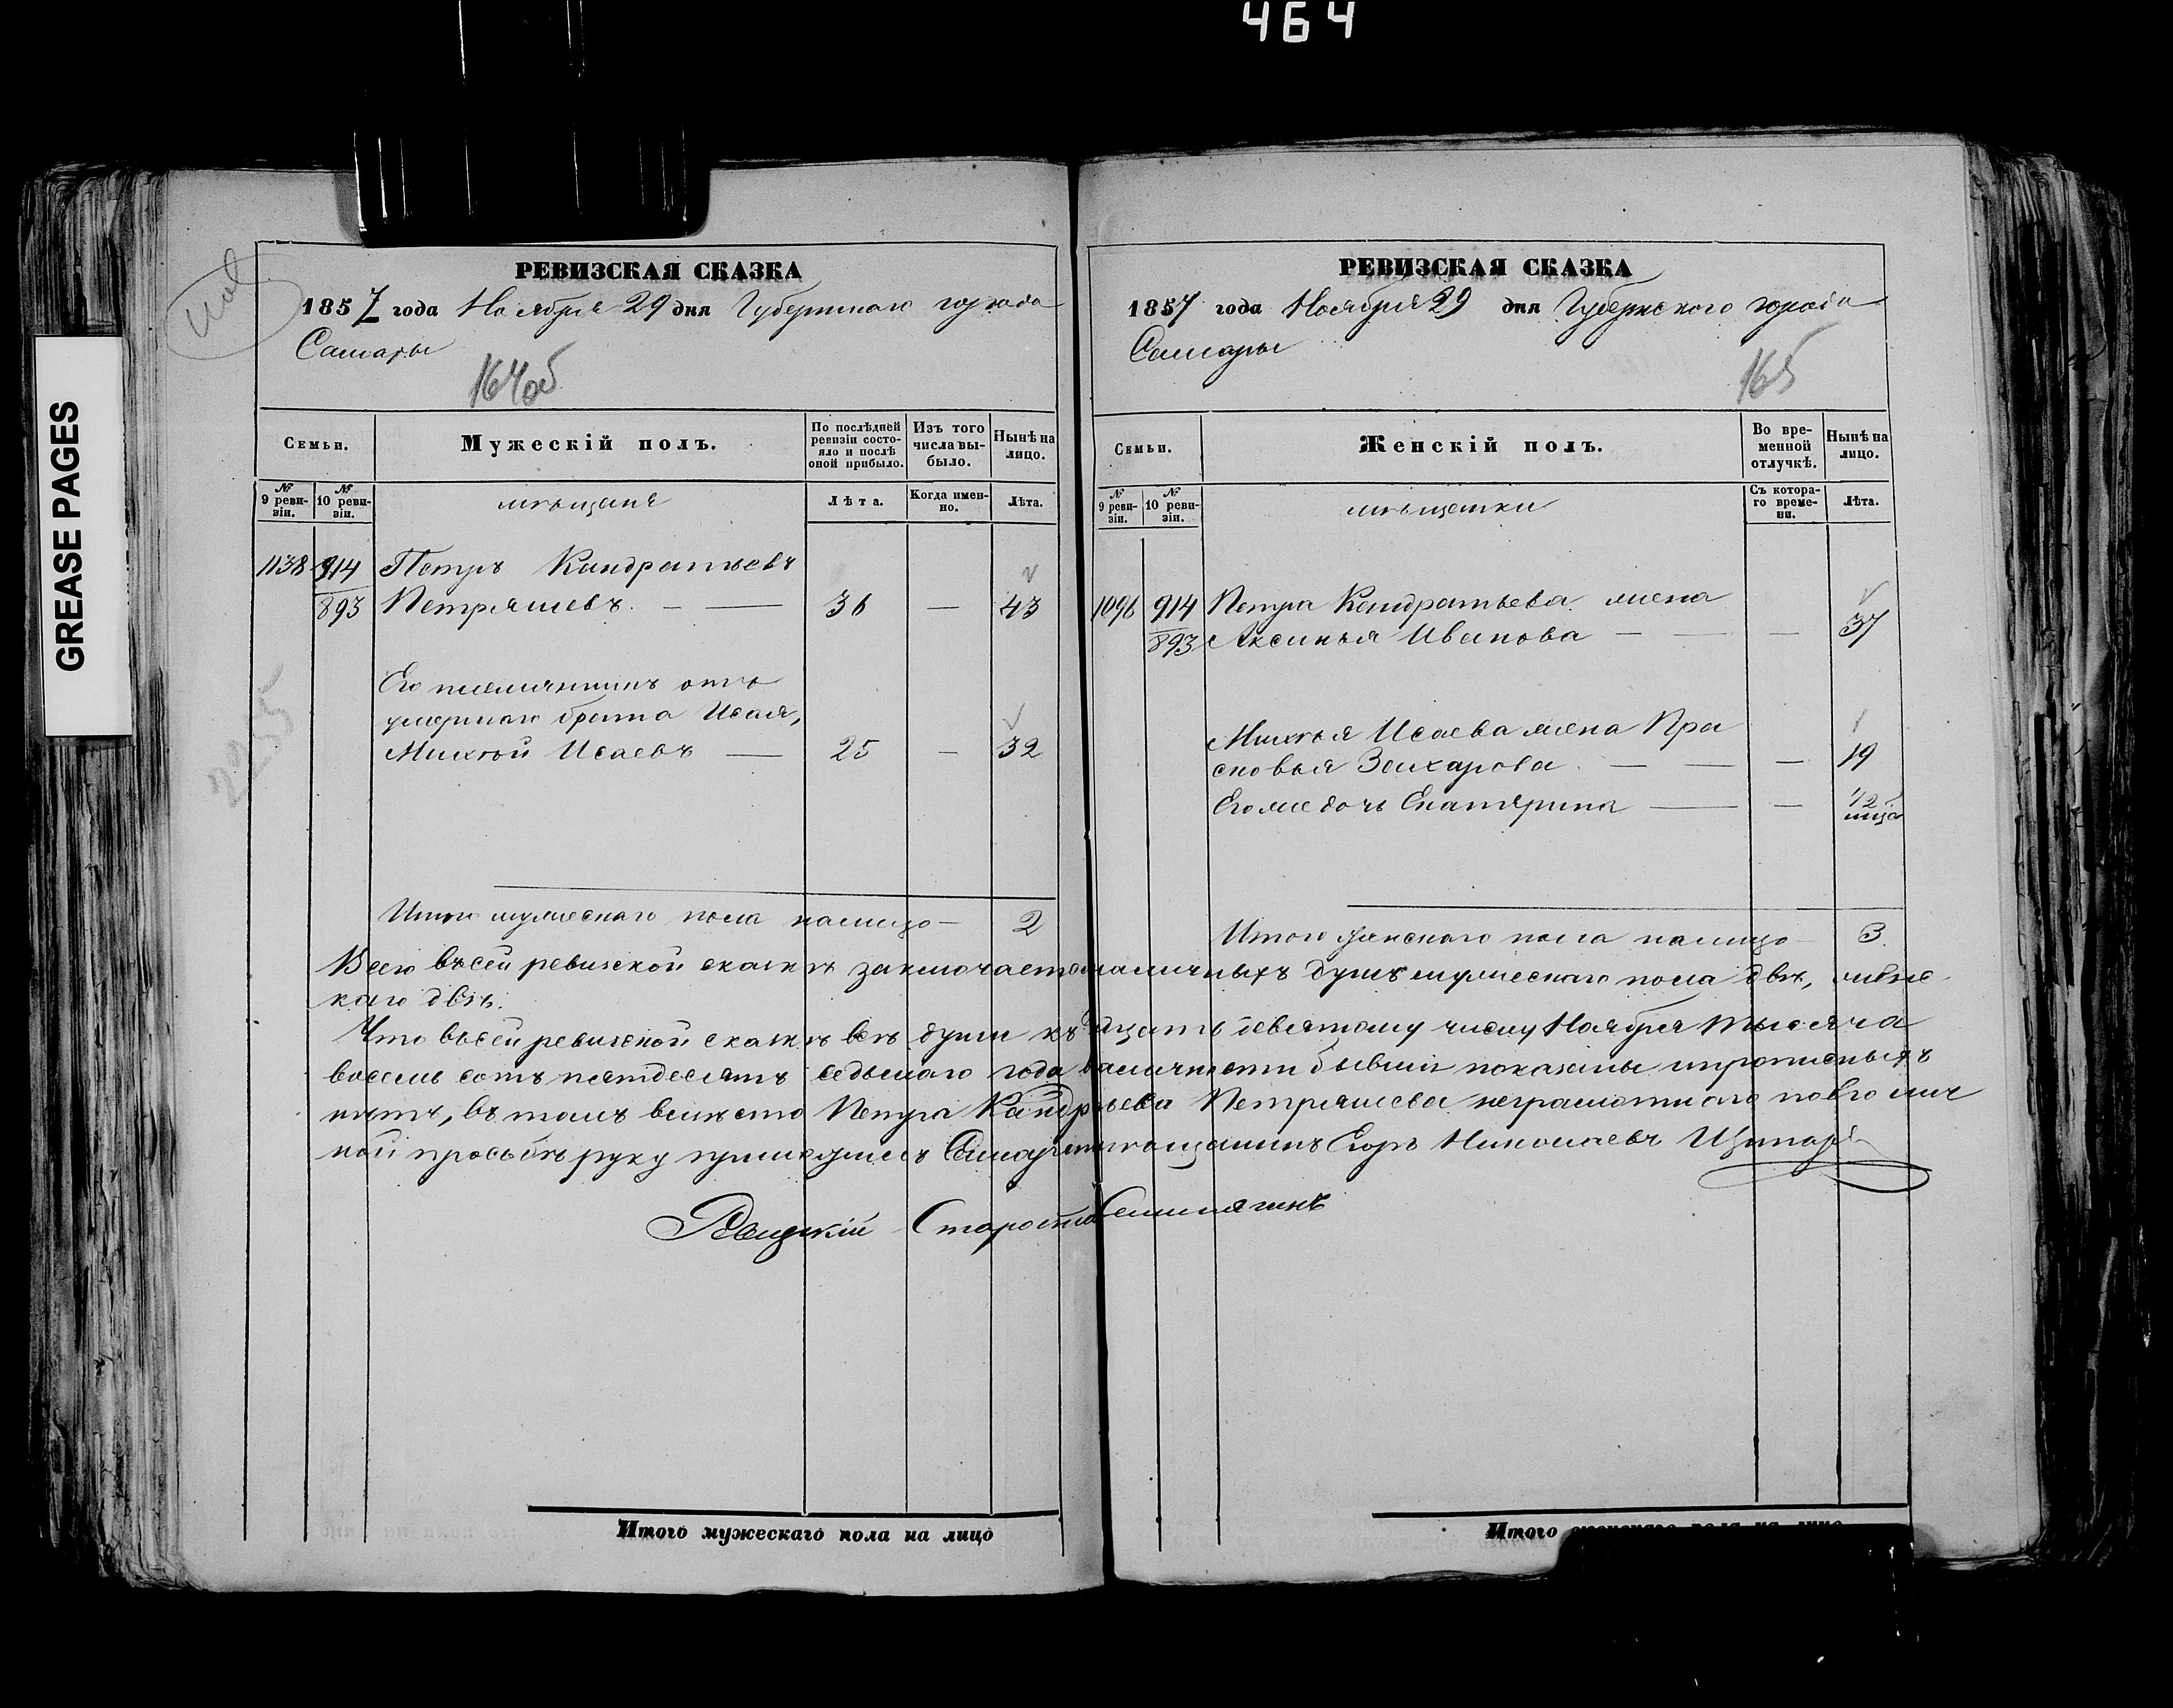 464
GREASE PAGES
РЕВИЗСКАЯ СКАЗКА
1857 года Ноября 29 дня Губернскаго города
Самары
164об
Семьи.
Мужескій полъ.
По послѣдней ревизіи состояло и послѣ оной прибыло.
Изъ того числа выбыло.
Нынѣ на лицо.
№ 9 ревизіи.
№ 10 ревизіи.
мѣщане
Лѣта.
Когда именно.
Лѣта.
1138 914 Петръ Кандратьевъ
893 Петряшевъ. — — 36 — 43
Его племянникъ отъ
умершаго брата Исая,
Михѣй Исаевъ — 25 — 32
Итого мужескаго пола налицо — 2
РЕВИЗСКАЯ СКАЗКА
1857 года Ноября 29 дня Губернского города
Самары
165
Семьи.
Женскій полъ.
Во временной отлучкѣ.
Нынѣ на лицо.
№ 9 ревизіи.
№ 10 ревизіи.
мѣщанки
Съ котораго времени.
Лѣта.
1096 914 Петра Кандратьева жена
893 Аксинья Иванова — — — 37
Михѣя Исаева жена Пра
сковья Захарова — — — 19
Егоже дочь Екатерина — — 1/2
Итого женскаго пола налицо — 3.
Всего въ сей ревизской сказкѣ заключается наличныхъ душъ мужескаго пола двѣ, женс
каго двѣ.
Что въ сей ревизской сказкѣ всѣ души къ двадцать девятому числу Ноября тысяча
восемь сотъ пятдесятъ седьмаго года въ наличности бывшія показаны и прописныхъ
нѣтъ, въ томъ вмѣсто Петра Кандратьева Петряшева неграмотнаго по его лич
ной просьбѣ руку приложилъ Самарскій мѣщанинъ Егоръ Николаевъ
Рѣцкій Староста
Итого мужескаго пола на лицо
Итого женскаго пола на лицо